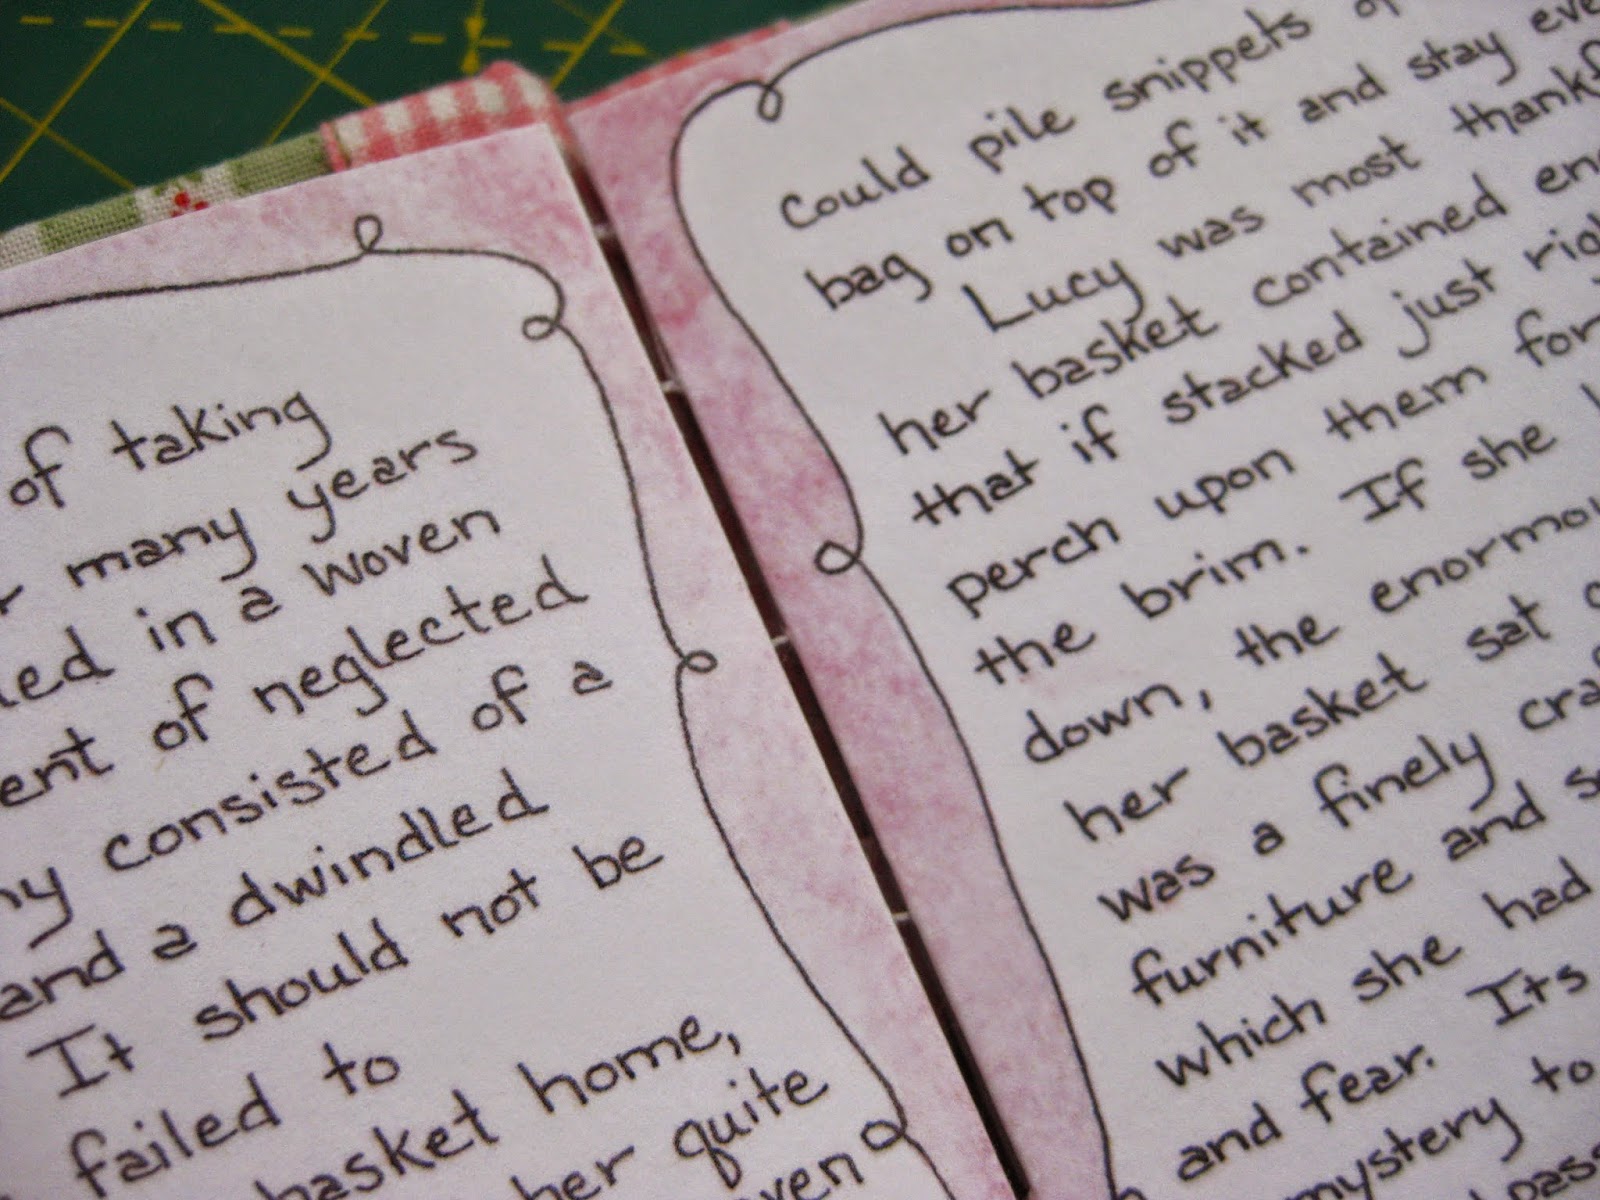 of taking
many years
in a woven
of neglected
consisted of a
and a dwindled
It should not be
failed to
basket home,
her quite
Could pile snippets
bag on top of it and stay
Lucy was most
her basket contained
that if stacked just
perch upon them for
the brim. If she
down, the
her basket sat
was a finely
furniture and
which she had
and fear. Its
mystery to